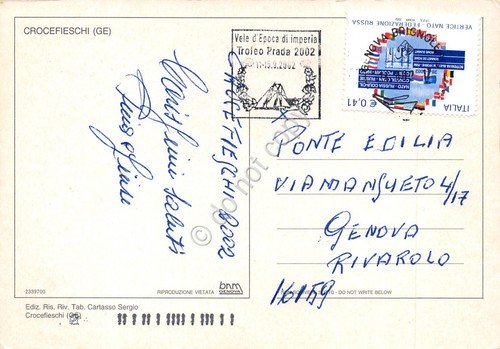 CROCEFIESCHI (GE)
Vele d'Epoca di Imperia
Trofeo Prada 2002
11-15.9.2002
VERTICE NATO - FEDERAZIONE RUSSA
NATO-RUSSIA COUNCIL
ITALIA
€ 0,41
CROCEFIESCHI 2002
saluti
PONTE EDILIA
VIA MANSUETO 4/17
GENOVA
RIVAROLO
16159
do not copy
2339703
RIPRODUZIONE VIETATA
bnm
GENOVA
- DO NOT WRITE BELOW
Ediz. Ris. Riv. Tab. Cartasso Sergio
Crocefieschi (GE)